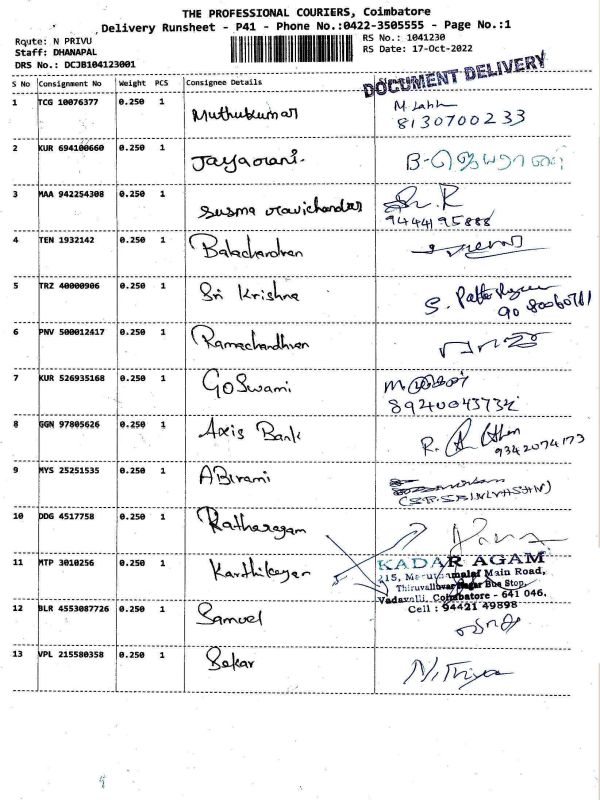 THE PROFESSIONAL COURIERS, Coimbatore
Delivery Runsheet - P41 - Phone No:0422-3505555 - Page No.:1
Route: N PRIVU
RS No.: 1041230
Staff: DHANAPAL
RS Date: 17-Oct-2022
DRS No.: DCJB104123001
DOCUMENT DELIVERY
S No Consignment No Weight PCS Consignee Details
1 TCG 10076377 0.250 1 Muthukumar
8130700233
2 KUR 694100660 0.250 1 Jayarani.
3 MAA 942254308 0.250 1 Susma ravichandran
9444195888
4 TEN 1932142 0.250 1 Balachandran
5 TRZ 40000906 0.250 1 Sri Krishna
6 PNV 500012417 0.250 1 Ramachandhran
7 KUR 526935168 0.250 1 Goswami
8 GGN 97805626 0.250 1 Axis Bank
9342074173
9 MYS 25251535 0.250 1 ABirami
10 DDG 4517758 0.250 1
11 MTP 3010256 0.250 1 Karthikeyan
KADAR AGAM
215, Maruthamalai Main Road,
Thiruvalluvar Nagar Bus Stop,
Vadavalli, Coimbatore - 641 046.
Cell : 94421 49898
12 BLR 4553087726 0.250 1 Samuel
13 VPL 215580358 0.250 1 Sekar
N. Thriya